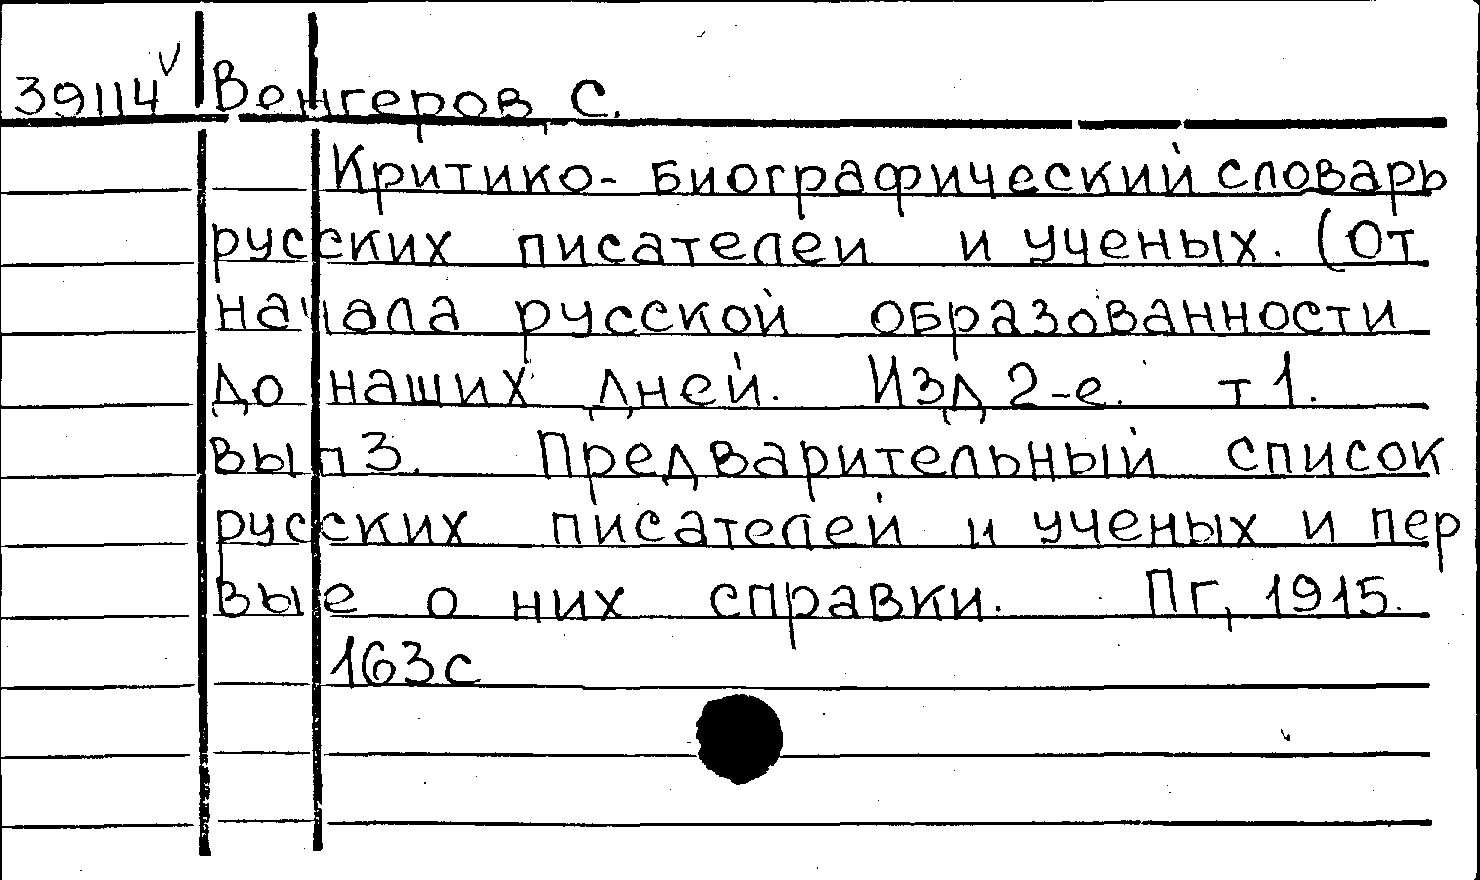 39114 v Венгеров, С.
Критико- биографический словарь
русских писателеи и ученых. (От
начала русской образованности
до наших дней. Изд 2-е. т 1.
вып 3. Предварительный список
русских писателей и ученых и пер
вые о них справки. Пг, 1915.
163с